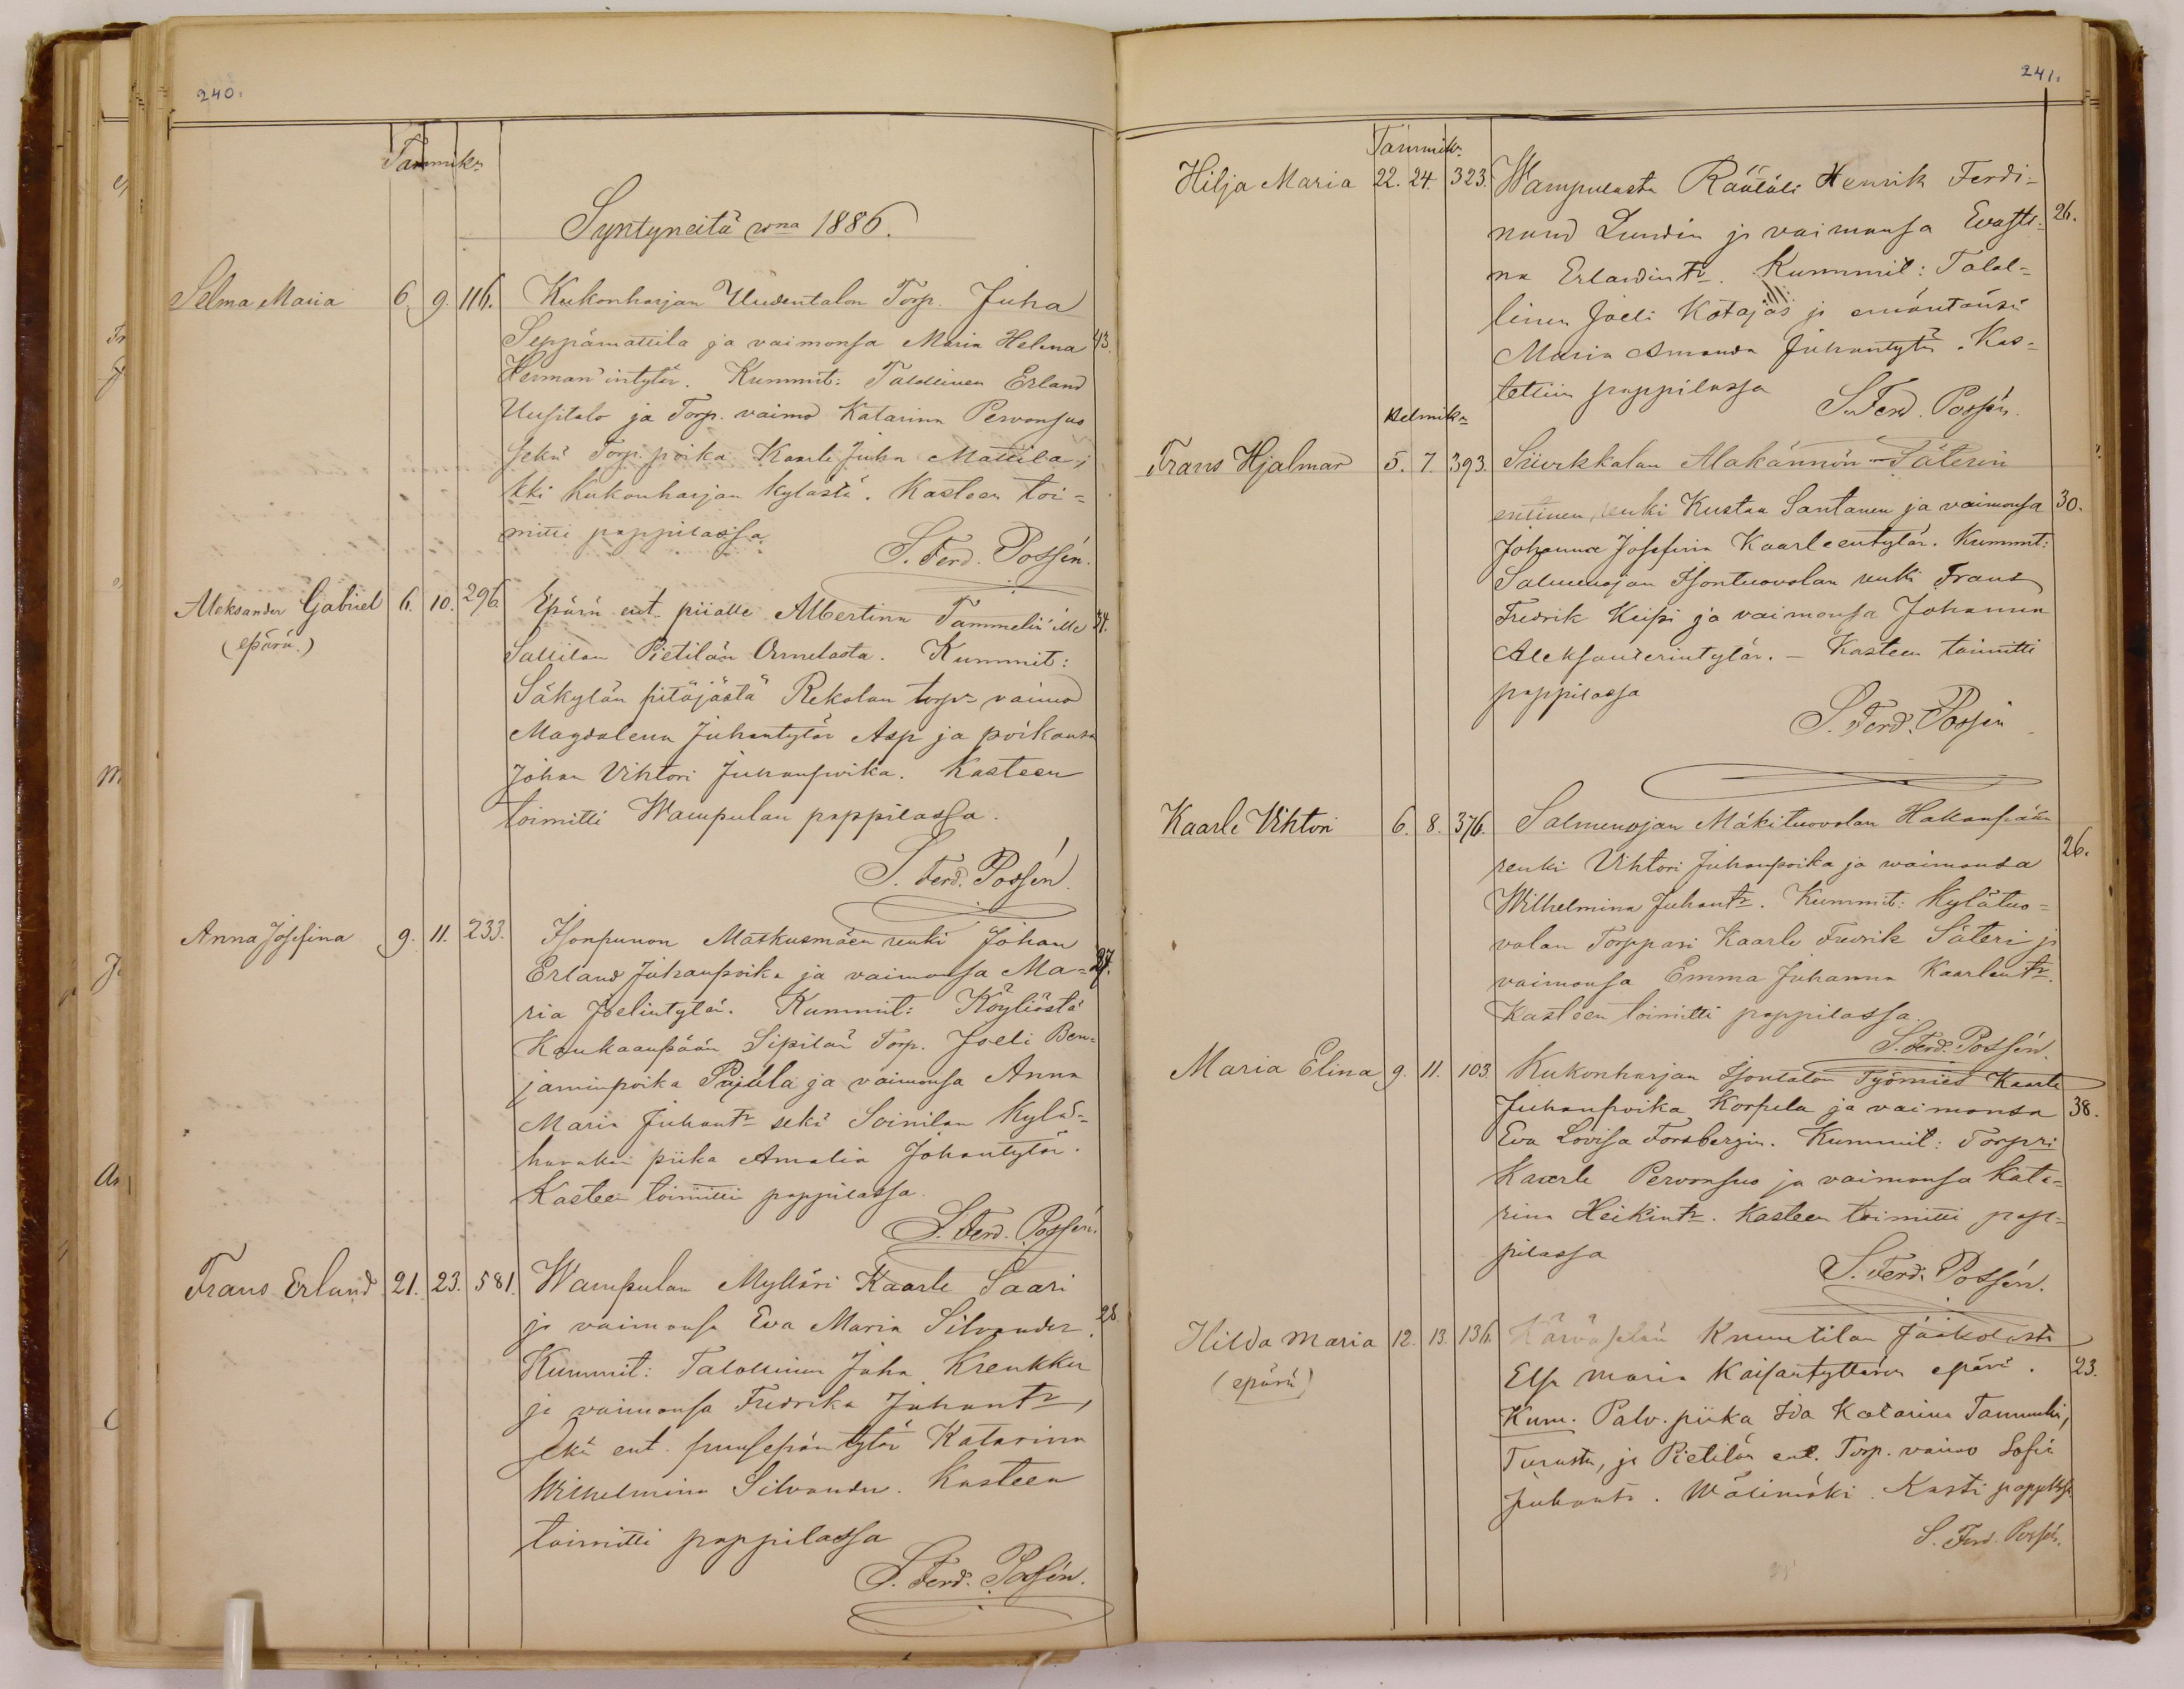 240.
Tammik.
Syntyneitä wna 1886.
Selma Maria 6. 9. 116. Kukonharjan Uudentalon Torp. Juha
Seppämattila ja vaimonsa Maria Helena 43.
Herman'intytär. Kummit: Talollinen Erland
Uusitalo ja Torp. vaimo Katarina Pervonsuo
sekä Torp. poika Kaarle Juha Mattila,
kki Kukonharjan kylästä. Kasteen toi=
mitti pappilassa.
S. Ferd. Possén.
Aleksander Gabriel 6. 10. 296. Epärä ent. piialle Albertina Tammelin'ille 34.
(epärä.) Sallilan Pietilän Ormelasta. Kummit:
Säkylän pitäjästä Rekolan torp. vaimo
Magdalena Juhantytär Asp ja poikansa
Johan Vihtori Juhanpoika. Kasteen
toimitti Wampulan pappilassa.
S. Ferd. Possén.
Anna Josefina 9. 11. 233. Isonpunon Maskusmäen renki Johan
Erland Juhanpoika ja vaimonsa Ma= 27.
ria Joelintytär. Kummit: Köyliöstä
Kankaanpään Sipilän Torp. Joeli Ben=
jaminpoika Pajula ja vaimonsa Anna
Maria Juhantr sekä Soinilan kylän=
harakka piika Amalia Johantytär.
Kasteen toimitti pappilassa.
S. Ferd. Possén.
Frans Erland 21. 23. 581. Wampulan Mylläri Kaarle Saari
ja vaimonsa Eva Maria Silvander. 28.
Kummit: Talollinen Juha Kreukku
ja vaimonsa Fredrika Juhantr,
sekä ent. puusepän tytär Katarina
Wilhelmina Silvander. Kasteen
toimitti pappilassa
S. Ferd. Possén.
241.
Tammik.
Hilja Maria 22. 24. 323. Wampulasta Räätäli Henrik Ferdi=
nand Lundin ja vaimonsa Evasti= 26.
na Erlandintr. Kummit: Talol=
linen Joeli Kotajas ja emäntänsä
Maria Amanda Juhantytär. Kas=
tettiin pappilassa
S. Ferd. Possén.
Helmik.
Frans Hjalmar 5. 7. 393. Suurkkalan Alakännön Säterin
entinen renki Kustaa Santanen ja vaimonsa 30.
Johanna Josefina Kaarleentytär. Kummit:
Salmenojan Isontuovolan renki Frans
Fredrik Keipi ja vaimonsa Johanna
Aleksanterintytär. – Kasteen toimitti
pappilassa
S. Ferd. Possén
Kaarle Vihtori 6. 8. 376. Salmenojan Mäkituovolan Hakanpään
renki Vihtori Juhanpoika ja waimonsa 26.
Wilhelmina Juhantr. Kummit: Kylätuo=
volan Torppari Kaarle Fredrik Säteri ja
vaimonsa Emma Juhanna Kaarlentr.
Kasteen toimitti pappilassa.
S. Ferd. Possén.
Maria Elina 9. 11. 103. Kukonharjan Isontalon Työmies Kaarle
Juhanpoika Korpela ja vaimonsa 38.
Eva Lovisa Forsbergin. Kummit: Torpri
Kaarle Pervonsuo ja vaimonsa Kata=
rina Heikintr. Kasteen toimitti pap=
pilassa
S. Ferd. Possén.
Hilda Maria 12. 13. 136. Kärväselän Knuutilan Jaakolasta
(epärä) Elsa Maria Kaisantyttären epärä. 23.
Kum. Palv. piika Ida Katarina Tammelin,
Turusta, ja Pietilän ent. Torp. vaimo Sofia
Juhantr. Wälimäki. Kasti pappilassa
S. Ferd. Possén.